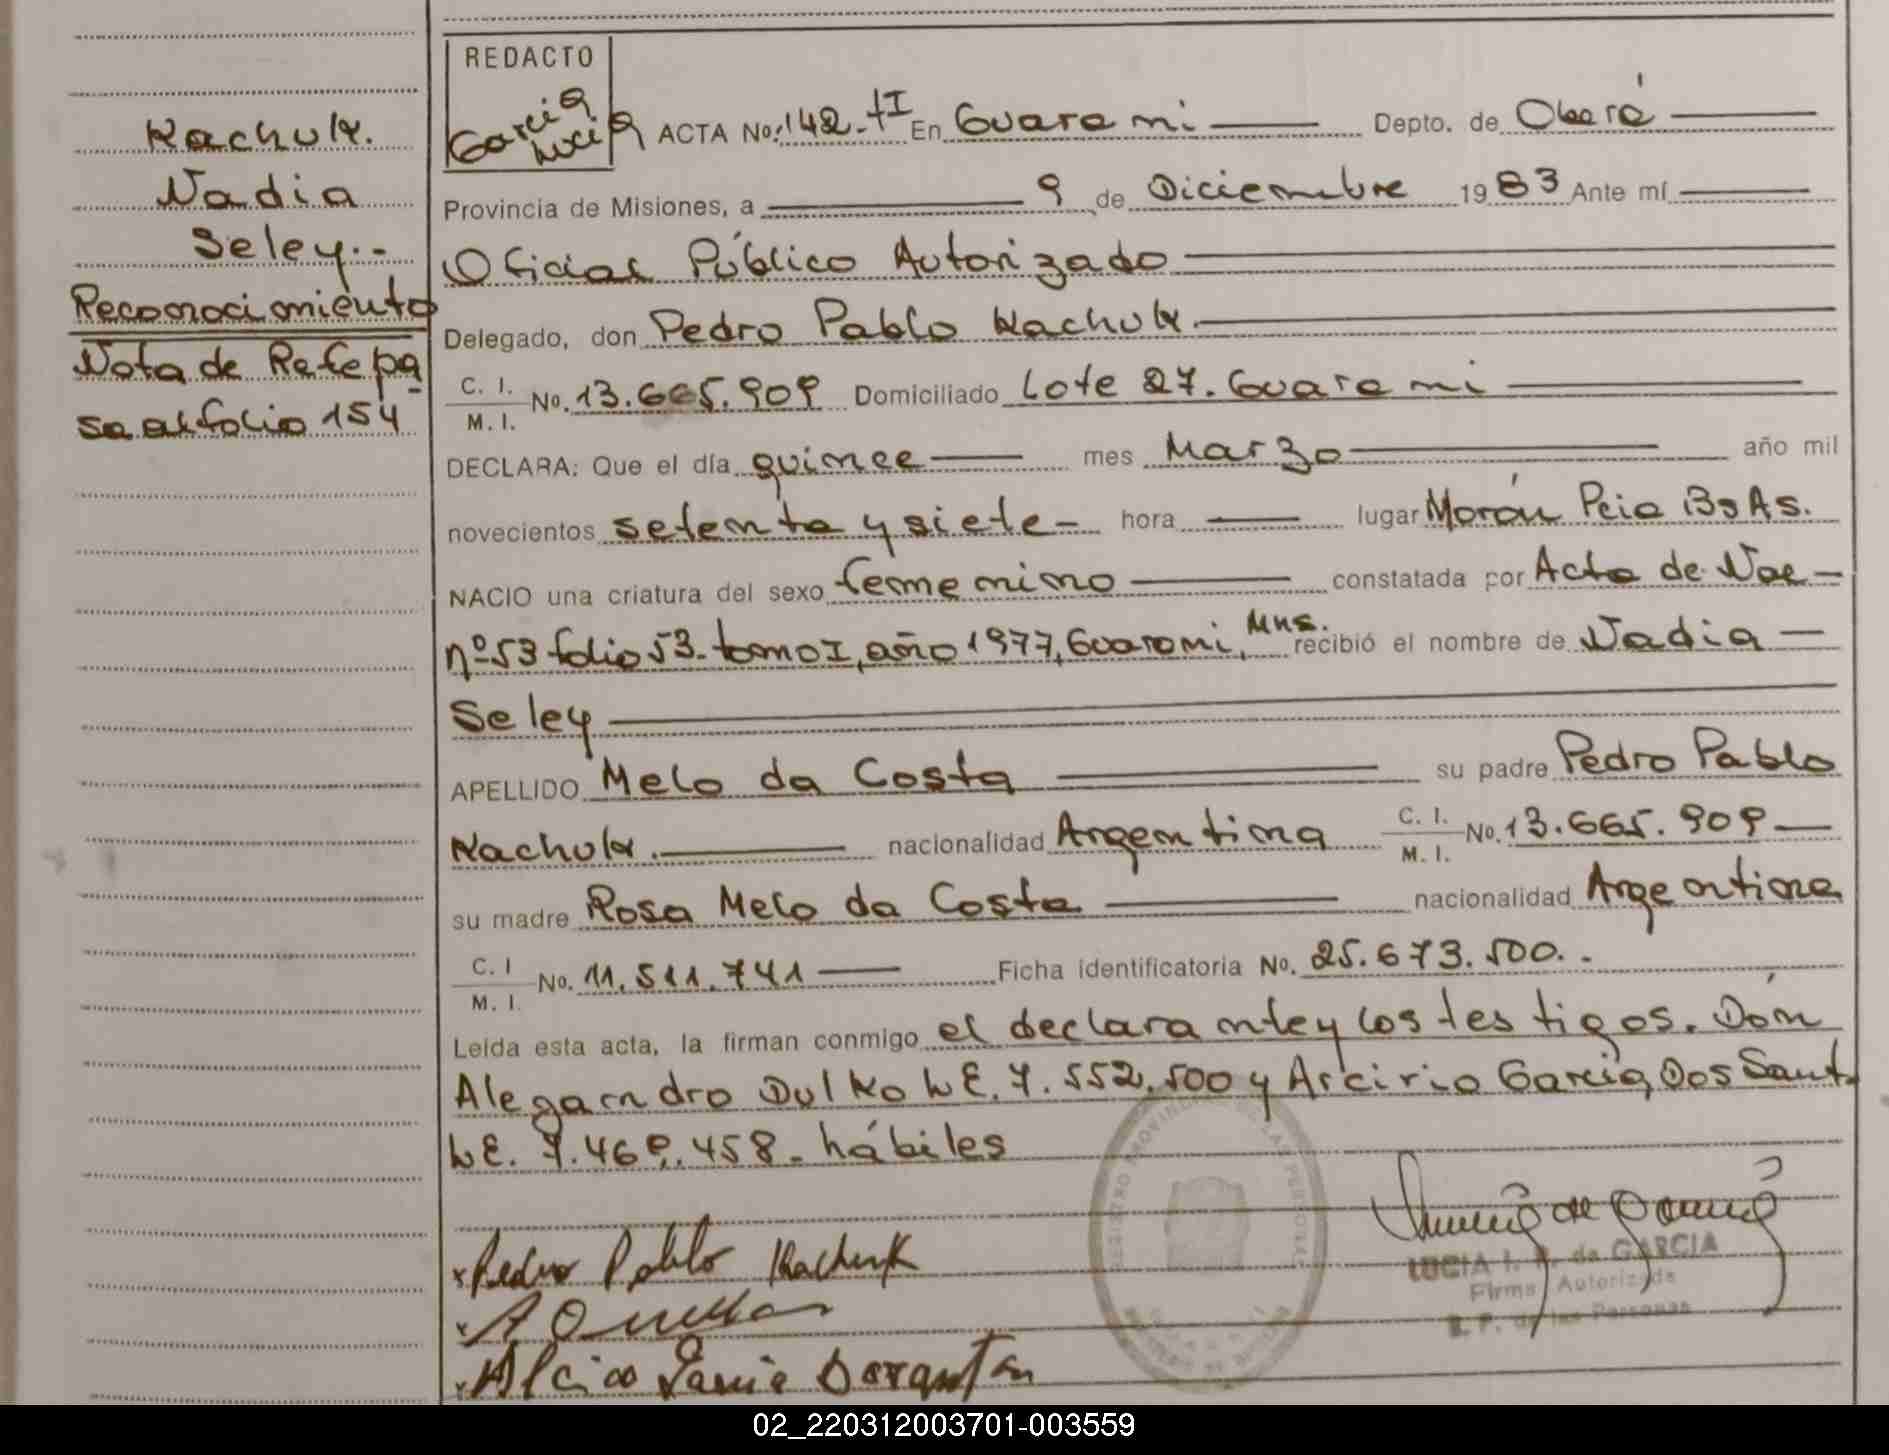 Kachuk.
Nadia
Seley.-
Reconocimiento
Nota de Ref. pa
sa al folio 154
REDACTO
Garcia
Lucia
ACTA No: 142-tI En Guarani Depto. de Oberá
Provincia de Misiones, a 9 de Diciembre 1983 Ante mí
Oficial Público Autorizado
Delegado, don Pedro Pablo Kachuk.
C. I. M. I. No. 13.665.909 Domiciliado Lote 27. Guarani
DECLARA: Que el día quince mes Marzo año mil
novecientos setenta y siete- hora lugar Morón Pcia Bs As.
NACIO una criatura del sexo femenino constatada por Acta de Nac-
nº 53 folio 53- tomo I, año 1977, Guarani, Mns. recibió el nombre de Nadia
Seley
APELLIDO Melo da Costa su padre Pedro Pablo
Kachuk. nacionalidad Argentina C. I. M. I. No. 13.665.909
su madre Rosa Melo da Costa nacionalidad Argentina
C. I M. I. No. 11.511.741 Ficha identificatoria No. 25.673.500.-
Leida esta acta, la firman conmigo el declarante y los testigos. Dón
Alegandro Dulko LE. 7.552.500 y Arcirio Garcia, Dos Sant.
LE. 7.469.458- hábiles
Pedro Pablo Kachuk
LUCIA I. R. de GARCIA
Firma Autorizada
R. P. de las Personas
REGISTRO PROVINCIAL DE LAS PERSONAS
02_220312003701-003559